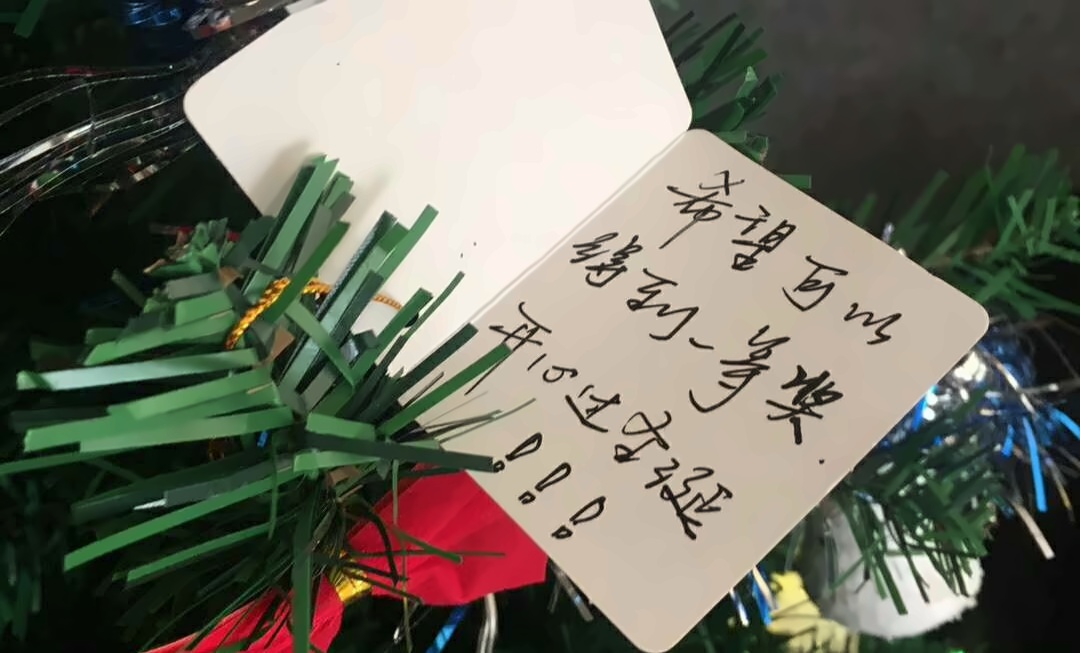 希望可以
得到一等奖.
开心过圣诞
!!!